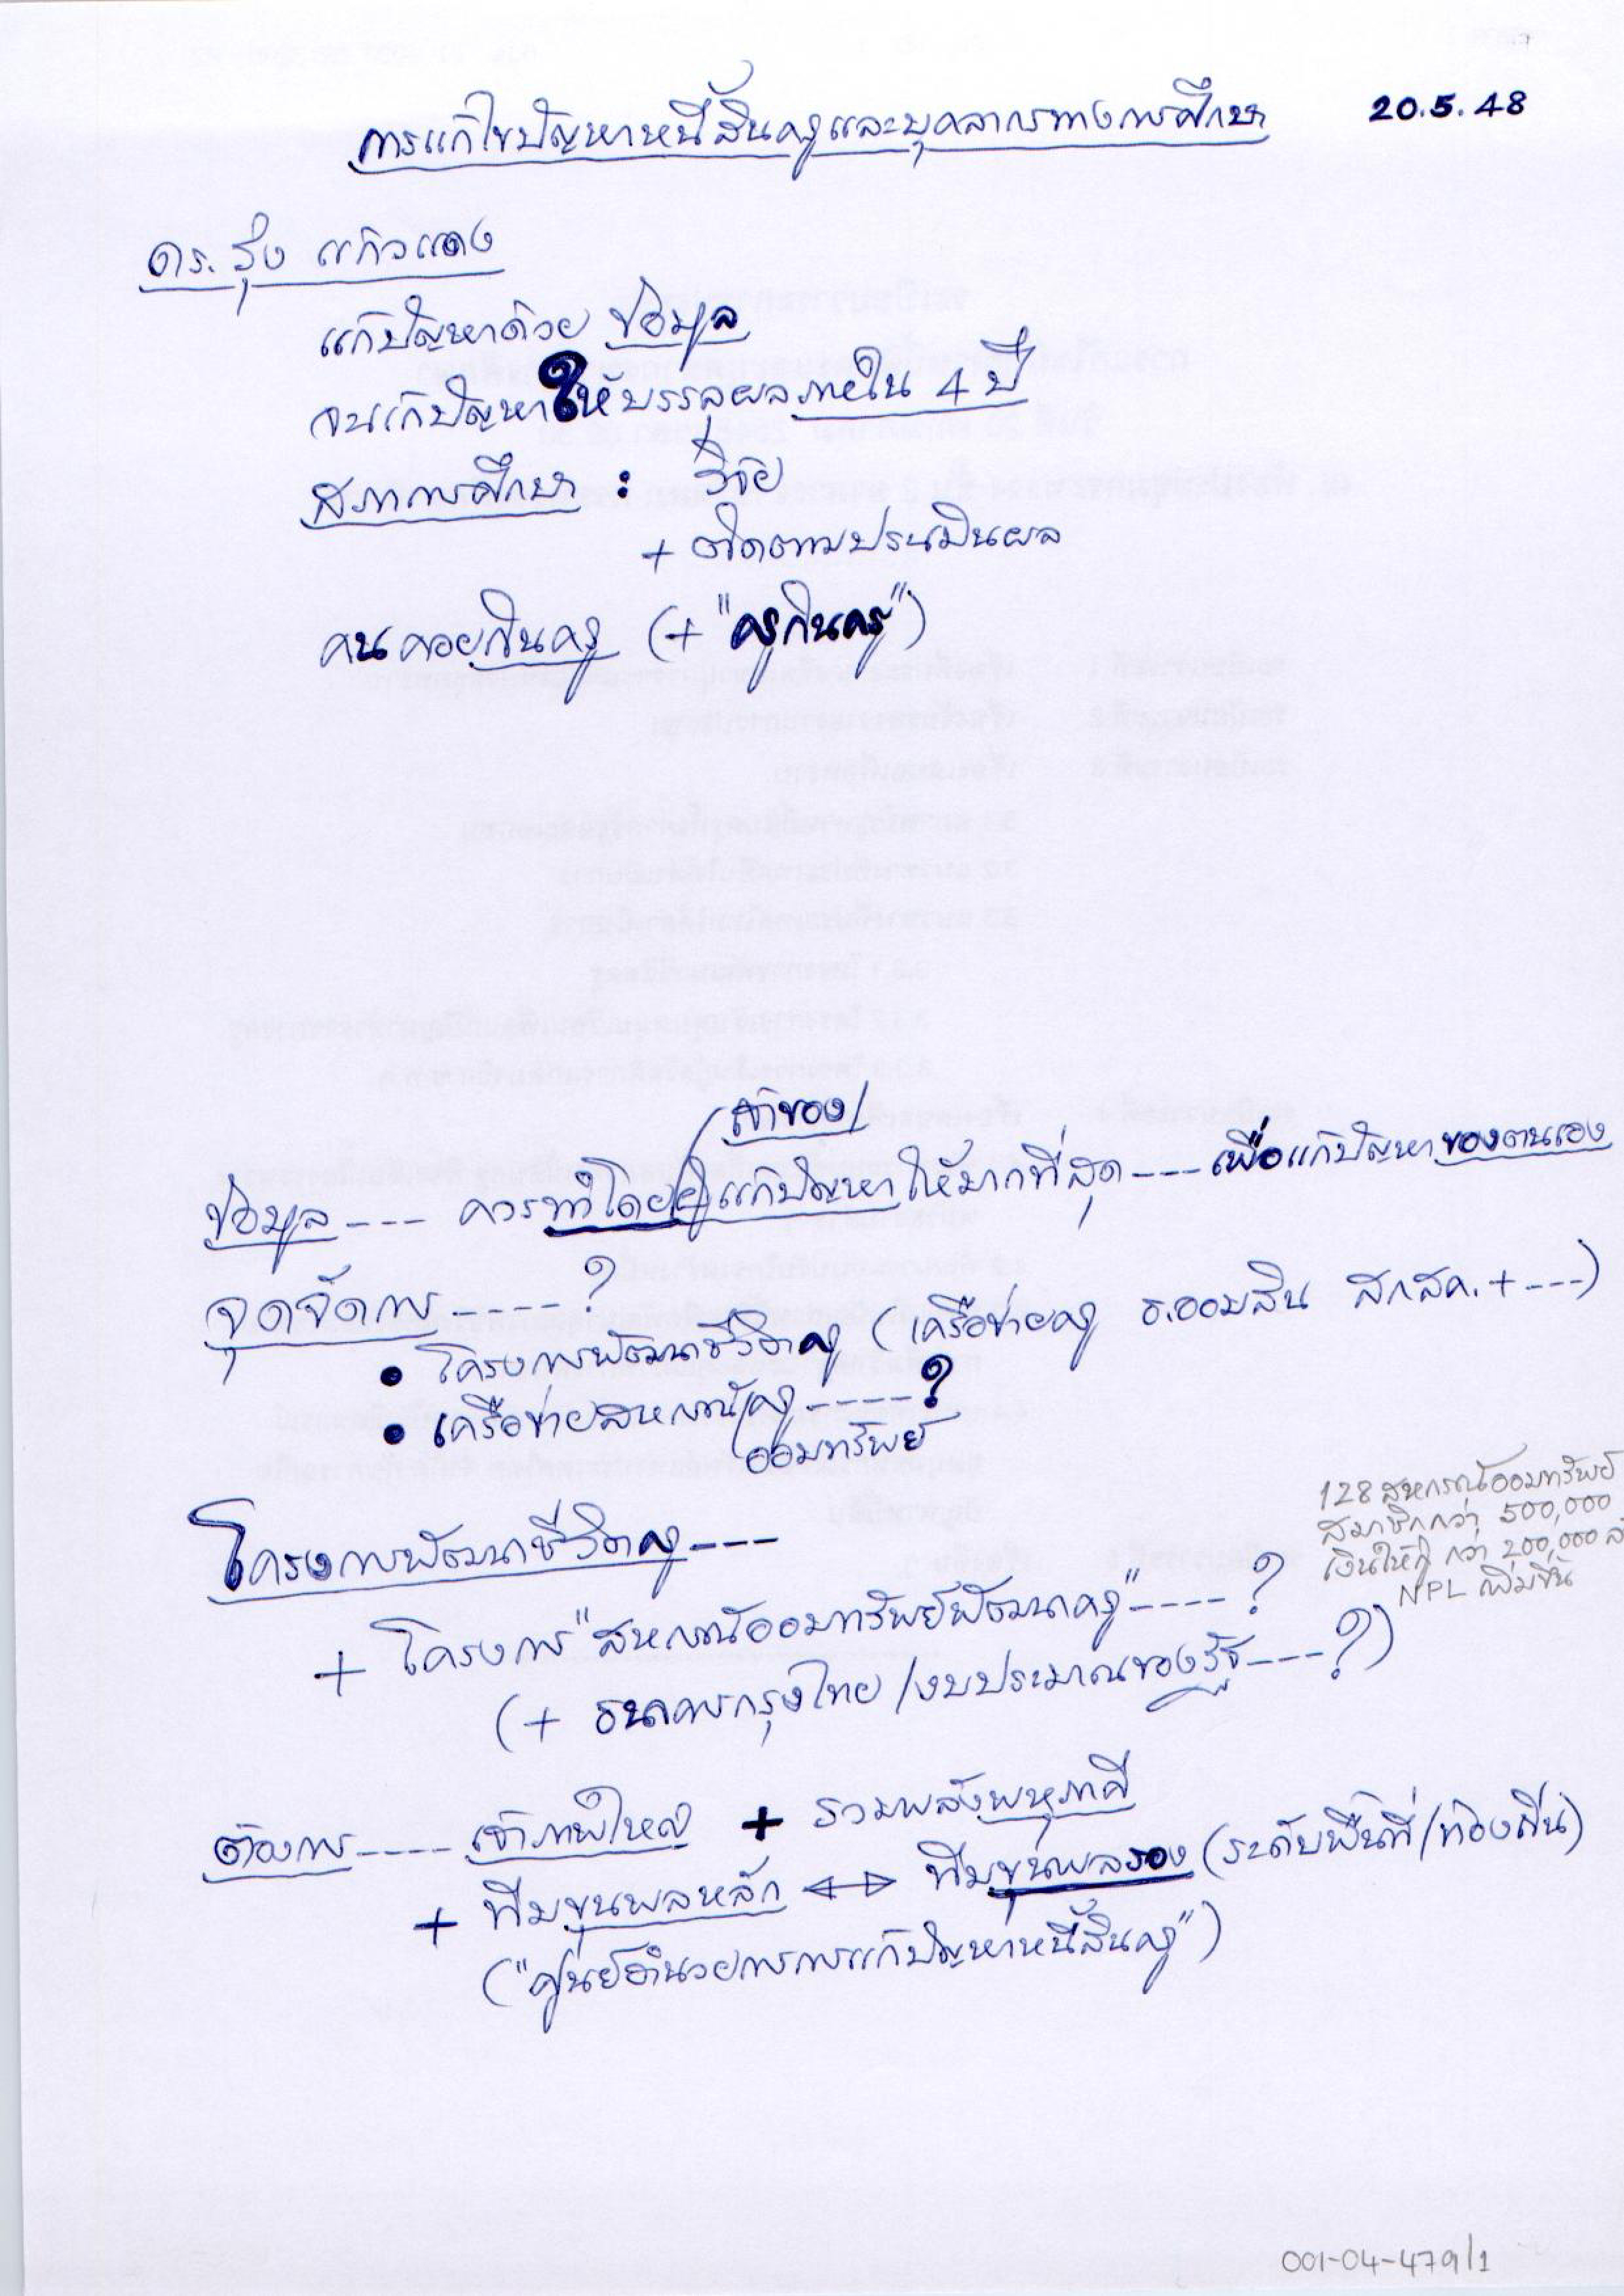 การแก้ไขปัญหาหนี้สินครูและบุคลากรทางการศึกษา
20.5.48
ดร. รุ่ง แก้วแดง
แก้ปัญหาด้วย ข้อมูล
จนแก้ปัญหาให้บรรลุผลภายใน 4 ปี
สภาการศึกษา : วิจัย
+ ติดตามประเมินผล
คนคอยกินครู (+ "ครูกินครู")
เจ้าของ
ข้อมูล --- ควรทำโดยผู้แก้ปัญหาให้มากที่สุด --- เพื่อแก้ปัญหาของตนเอง
จุดจัดการ -----?
• โครงการพัฒนาชีวิตครู (เครือข่ายครู ธ.ออมสิน สกสค. + ---)
• เครือข่ายสหกรณ์ครู -----?
ออมทรัพย์
128 สหกรณ์ออมทรัพย์
สมาชิกกว่า 500,000
เงินให้กู้ กว่า 200,000 ล
NPL เพิ่มขึ้น
โครงการพัฒนาชีวิตครู ---
+ โครงการ "สหกรณ์ออมทรัพย์พัฒนาครู" ----?
(+ ธนาคารกรุงไทย / งบประมาณของรัฐ ---?)
ต้องการ ---- เจ้าภาพใหญ่ + รวมพลังพหุภาคี
+ ทีมขุนพลหลัก ↔ ทีมขุนพลรอง (ระดับพื้นที่/ท้องถิ่น)
("ศูนย์อำนวยการการแก้ปัญหาหนี้สินครู")
001-04-479/1